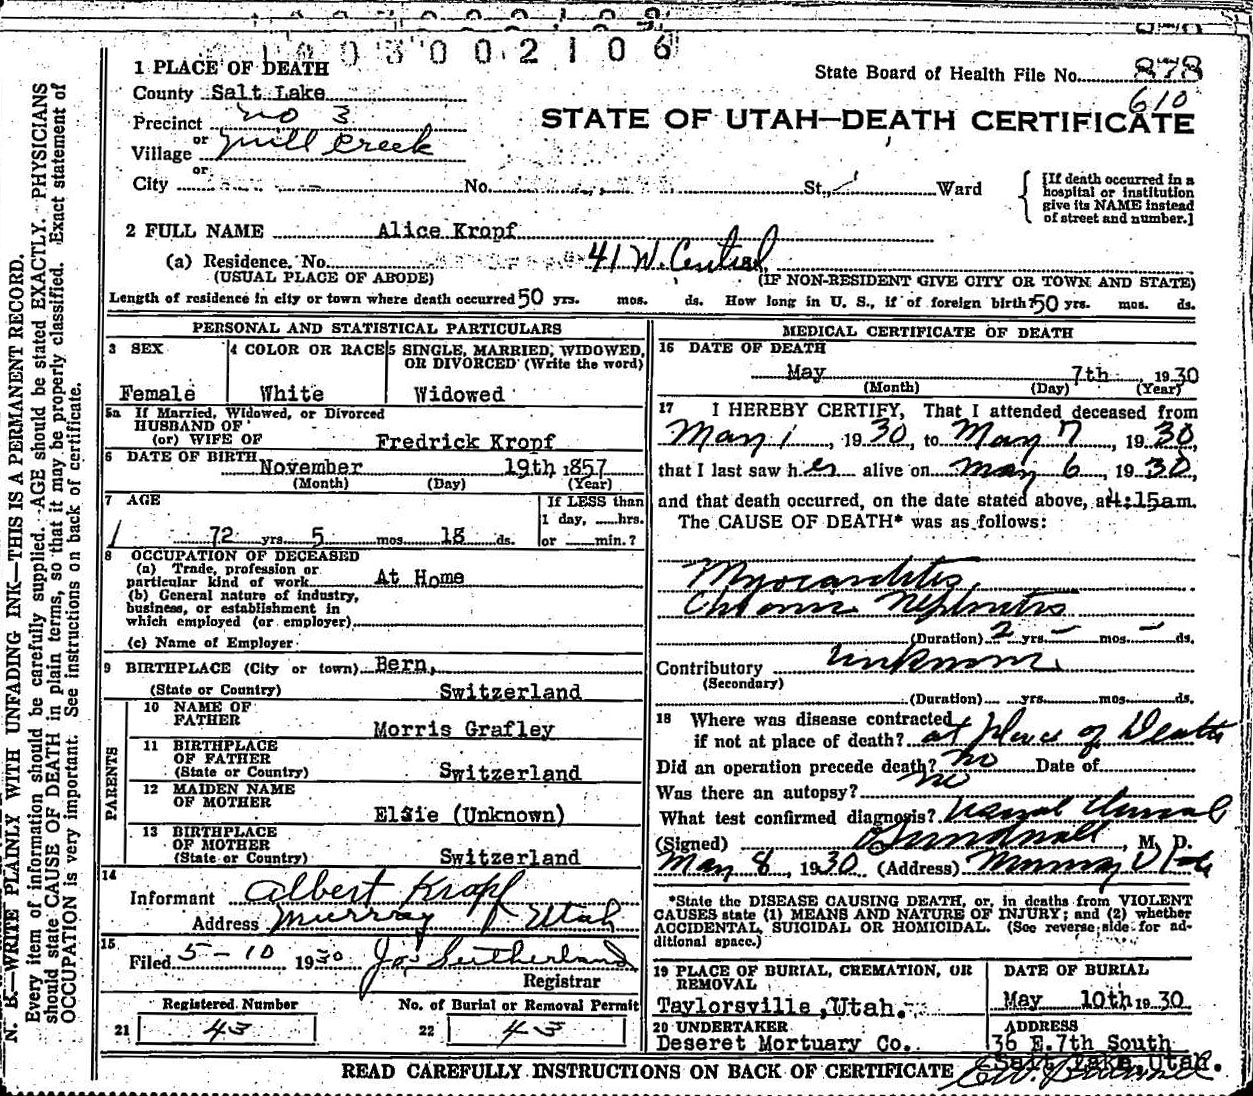 1003002106
1 PLACE OF DEATH
State Board of Health File No. 878
County Salt Lake
610
Precinct No 3
STATE OF UTAH—DEATH CERTIFICATE
or
Village Mill Creek
or
City No. St., Ward
[If death occurred in a hospital or institution give its NAME instead of street and number.]
2 FULL NAME Alice Kropf
(a) Residence. No. 41 W. Central
(USUAL PLACE OF ABODE) (IF NON-RESIDENT GIVE CITY OR TOWN AND STATE)
Length of residence in city or town where death occurred 50 yrs. mos. ds. How long in U. S., if of foreign birth? 50 yrs. mos. ds.
PERSONAL AND STATISTICAL PARTICULARS
3 SEX
Female
4 COLOR OR RACE
White
5 SINGLE, MARRIED, WIDOWED, OR DIVORCED (Write the word)
Widowed
5a If Married, Widowed, or Divorced
HUSBAND OF
(or) WIFE OF Fredrick Kropf
6 DATE OF BIRTH
November 19th 1857
(Month) (Day) (Year)
7 AGE
72 yrs. 5 mos. 18 ds.
If LESS than
1 day, hrs.
or min.?
8 OCCUPATION OF DECEASED
(a) Trade, profession or
particular kind of work At Home
(b) General nature of industry,
business, or establishment in
which employed (or employer)
(c) Name of Employer
9 BIRTHPLACE (City or town) Bern,
(State or Country) Switzerland
PARENTS
10 NAME OF
FATHER Morris Grafley
11 BIRTHPLACE
OF FATHER
(State or Country) Switzerland
12 MAIDEN NAME
OF MOTHER Elsie (Unknown)
13 BIRTHPLACE
OF MOTHER
(State or Country) Switzerland
14
Informant Albert Kropf
Address Murray Utah
15
Filed 5-10 1930 Jas Sutherland
Registrar
Registered Number No. of Burial or Removal Permit
21 43 22 43
MEDICAL CERTIFICATE OF DEATH
16 DATE OF DEATH
May 7th, 1930
(Month) (Day) (Year)
17 I HEREBY CERTIFY, That I attended deceased from
May 1, 1930, to May 7, 1930,
that I last saw her alive on May 6, 1930,
and that death occurred, on the date stated above, at 4:15am.
The CAUSE OF DEATH* was as follows:
Myocarditis,
Chronic Nephritis
(Duration) 2 yrs. – mos. – ds.
Contributory Unknown.
(Secondary)
(Duration) yrs. mos. ds.
18 Where was disease contracted
if not at place of death? at place of Death
Did an operation precede death? no Date of
Was there an autopsy? no
What test confirmed diagnosis? Usual clinical
(Signed) Sundwall, M. D.
May 8, 1930 (Address) Murray Utah
*State the DISEASE CAUSING DEATH, or, in deaths from VIOLENT
CAUSES state (1) MEANS AND NATURE OF INJURY; and (2) whether
ACCIDENTAL, SUICIDAL OR HOMICIDAL. (See reverse side for ad-
ditional space.)
19 PLACE OF BURIAL, CREMATION, OR
REMOVAL
Taylorsville, Utah.
DATE OF BURIAL
May 10th 1930
20 UNDERTAKER
Deseret Mortuary Co.
ADDRESS
36 E. 7th South
Salt Lake, Utah.
READ CAREFULLY INSTRUCTIONS ON BACK OF CERTIFICATE
N. B.—WRITE PLAINLY WITH UNFADING INK—THIS IS A PERMANENT RECORD.
Every item of information should be carefully supplied. AGE should be stated EXACTLY. PHYSICIANS
should state CAUSE OF DEATH in plain terms, so that it may be properly classified. Exact statement of
OCCUPATION is very important. See instructions on back of certificate.